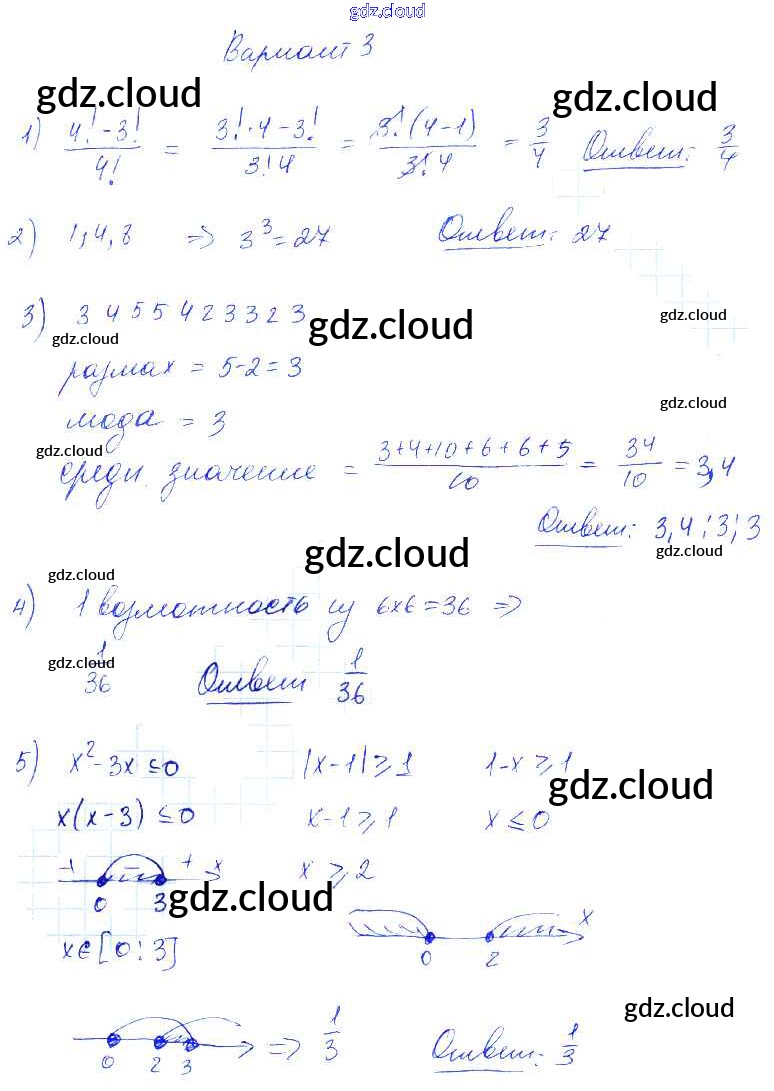 gdz.cloud
Вариант 3
gdz.cloud gdz.cloud
1) (4! - 3!)/4! = (3! · 4 - 3!)/(3! 4) = (3! (4 - 1))/(3! 4) = 3/4 Ответ: 3/4
2) 1, 4, 8 => 3³ = 27 Ответ: 27
3) 3 4 5 5 4 2 3 3 2 3 gdz.cloud gdz.cloud
gdz.cloud
размах = 5-2 = 3
gdz.cloud
мода = 3
gdz.cloud
средн. значение = (3+4+10+6+6+5)/10 = 34/10 = 3,4
Ответ: 3,4; 3; 3
gdz.cloud gdz.cloud
gdz.cloud
4) 1 возможность из 6x6 = 36 =>
gdz.cloud
1/36 Ответ 1/36
5) x² - 3x ≤ 0 |x - 1| ≥ 1 1 - x ≥ 1
gdz.cloud
x(x - 3) ≤ 0 x - 1 ≥ 1 x ≤ 0
+ - + x x ≥ 2
0 3 gdz.cloud x
0 2
x ∈ [0; 3]
gdz.cloud
0 2 3 => 1/3 Ответ: 1/3